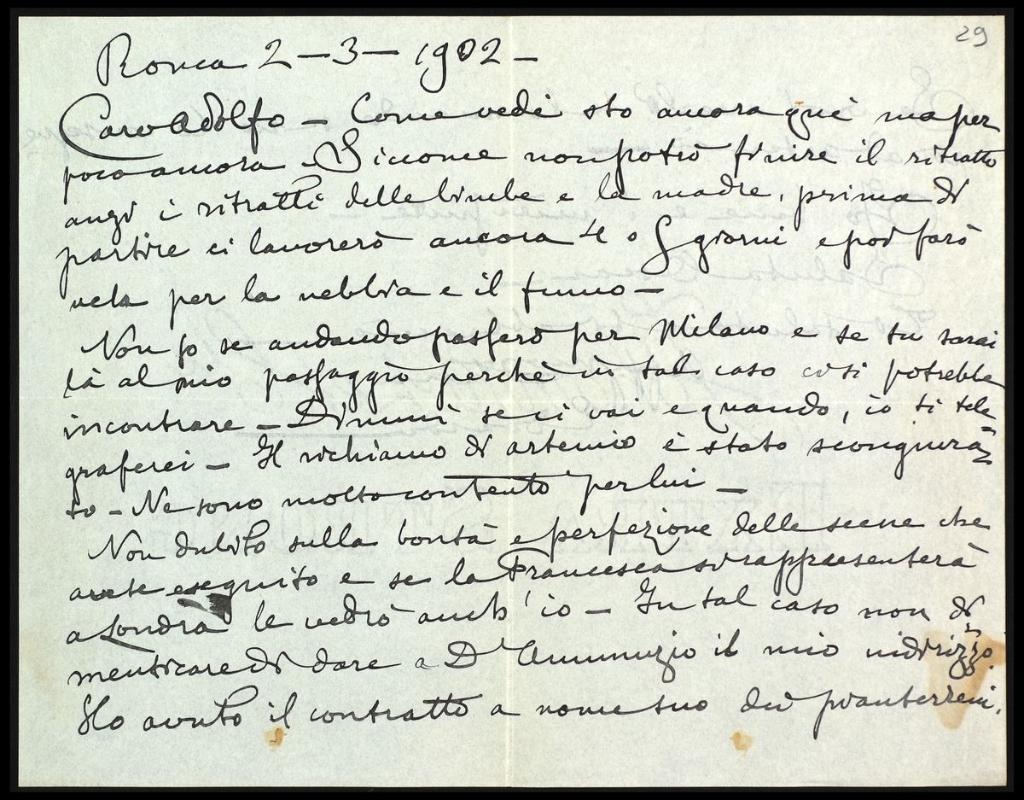 29
Roma 2-3-1902-
Caro Adolfo - Come vedi sto ancora quì ma per
poco ancora - Siccome non potrò finire il ritratto
anzi i ritratti delle bimbe e la madre, prima di
partire ci lavorerò ancora 4 o 5 giorni e poi farò
vela per la nebbia e il fumo -
Non so se andando passerò per Milano e se tu sarai
là al mio passaggio perchè in tal caso ci si potrebbe
incontrare - Dimmi se ci vai e quando, io ti tele
graferei - Il richiamo di artemio è stato scongiura=
to - Ne sono molto contento per lui -
Non dubito sulla bontà e perfezione delle scene che
avete eseguito e se la Francesca si rappresenterà
a Londra le vedrò anch'io - In tal caso non di=
menticare di dare a D'Annunzio il mio indirizzo.
Ho avuto il contratto a nome tuo dei pianterreni.